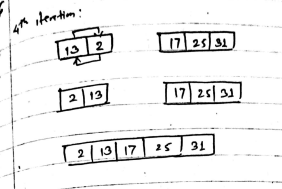 4th iteration:
13 2 17 25 31
2 13 17 25 31
2 13 17 25 31